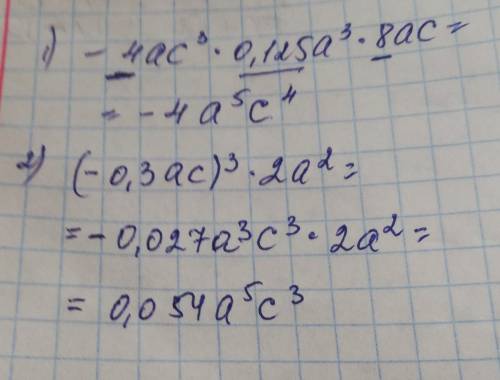 1) - 4ac³ · 0,125a³ · 8ac =
= - 4a⁵c⁴
2) (-0,3ac)³ · 2a² =
= - 0,027a³c³ · 2a² =
= 0,054a⁵c³